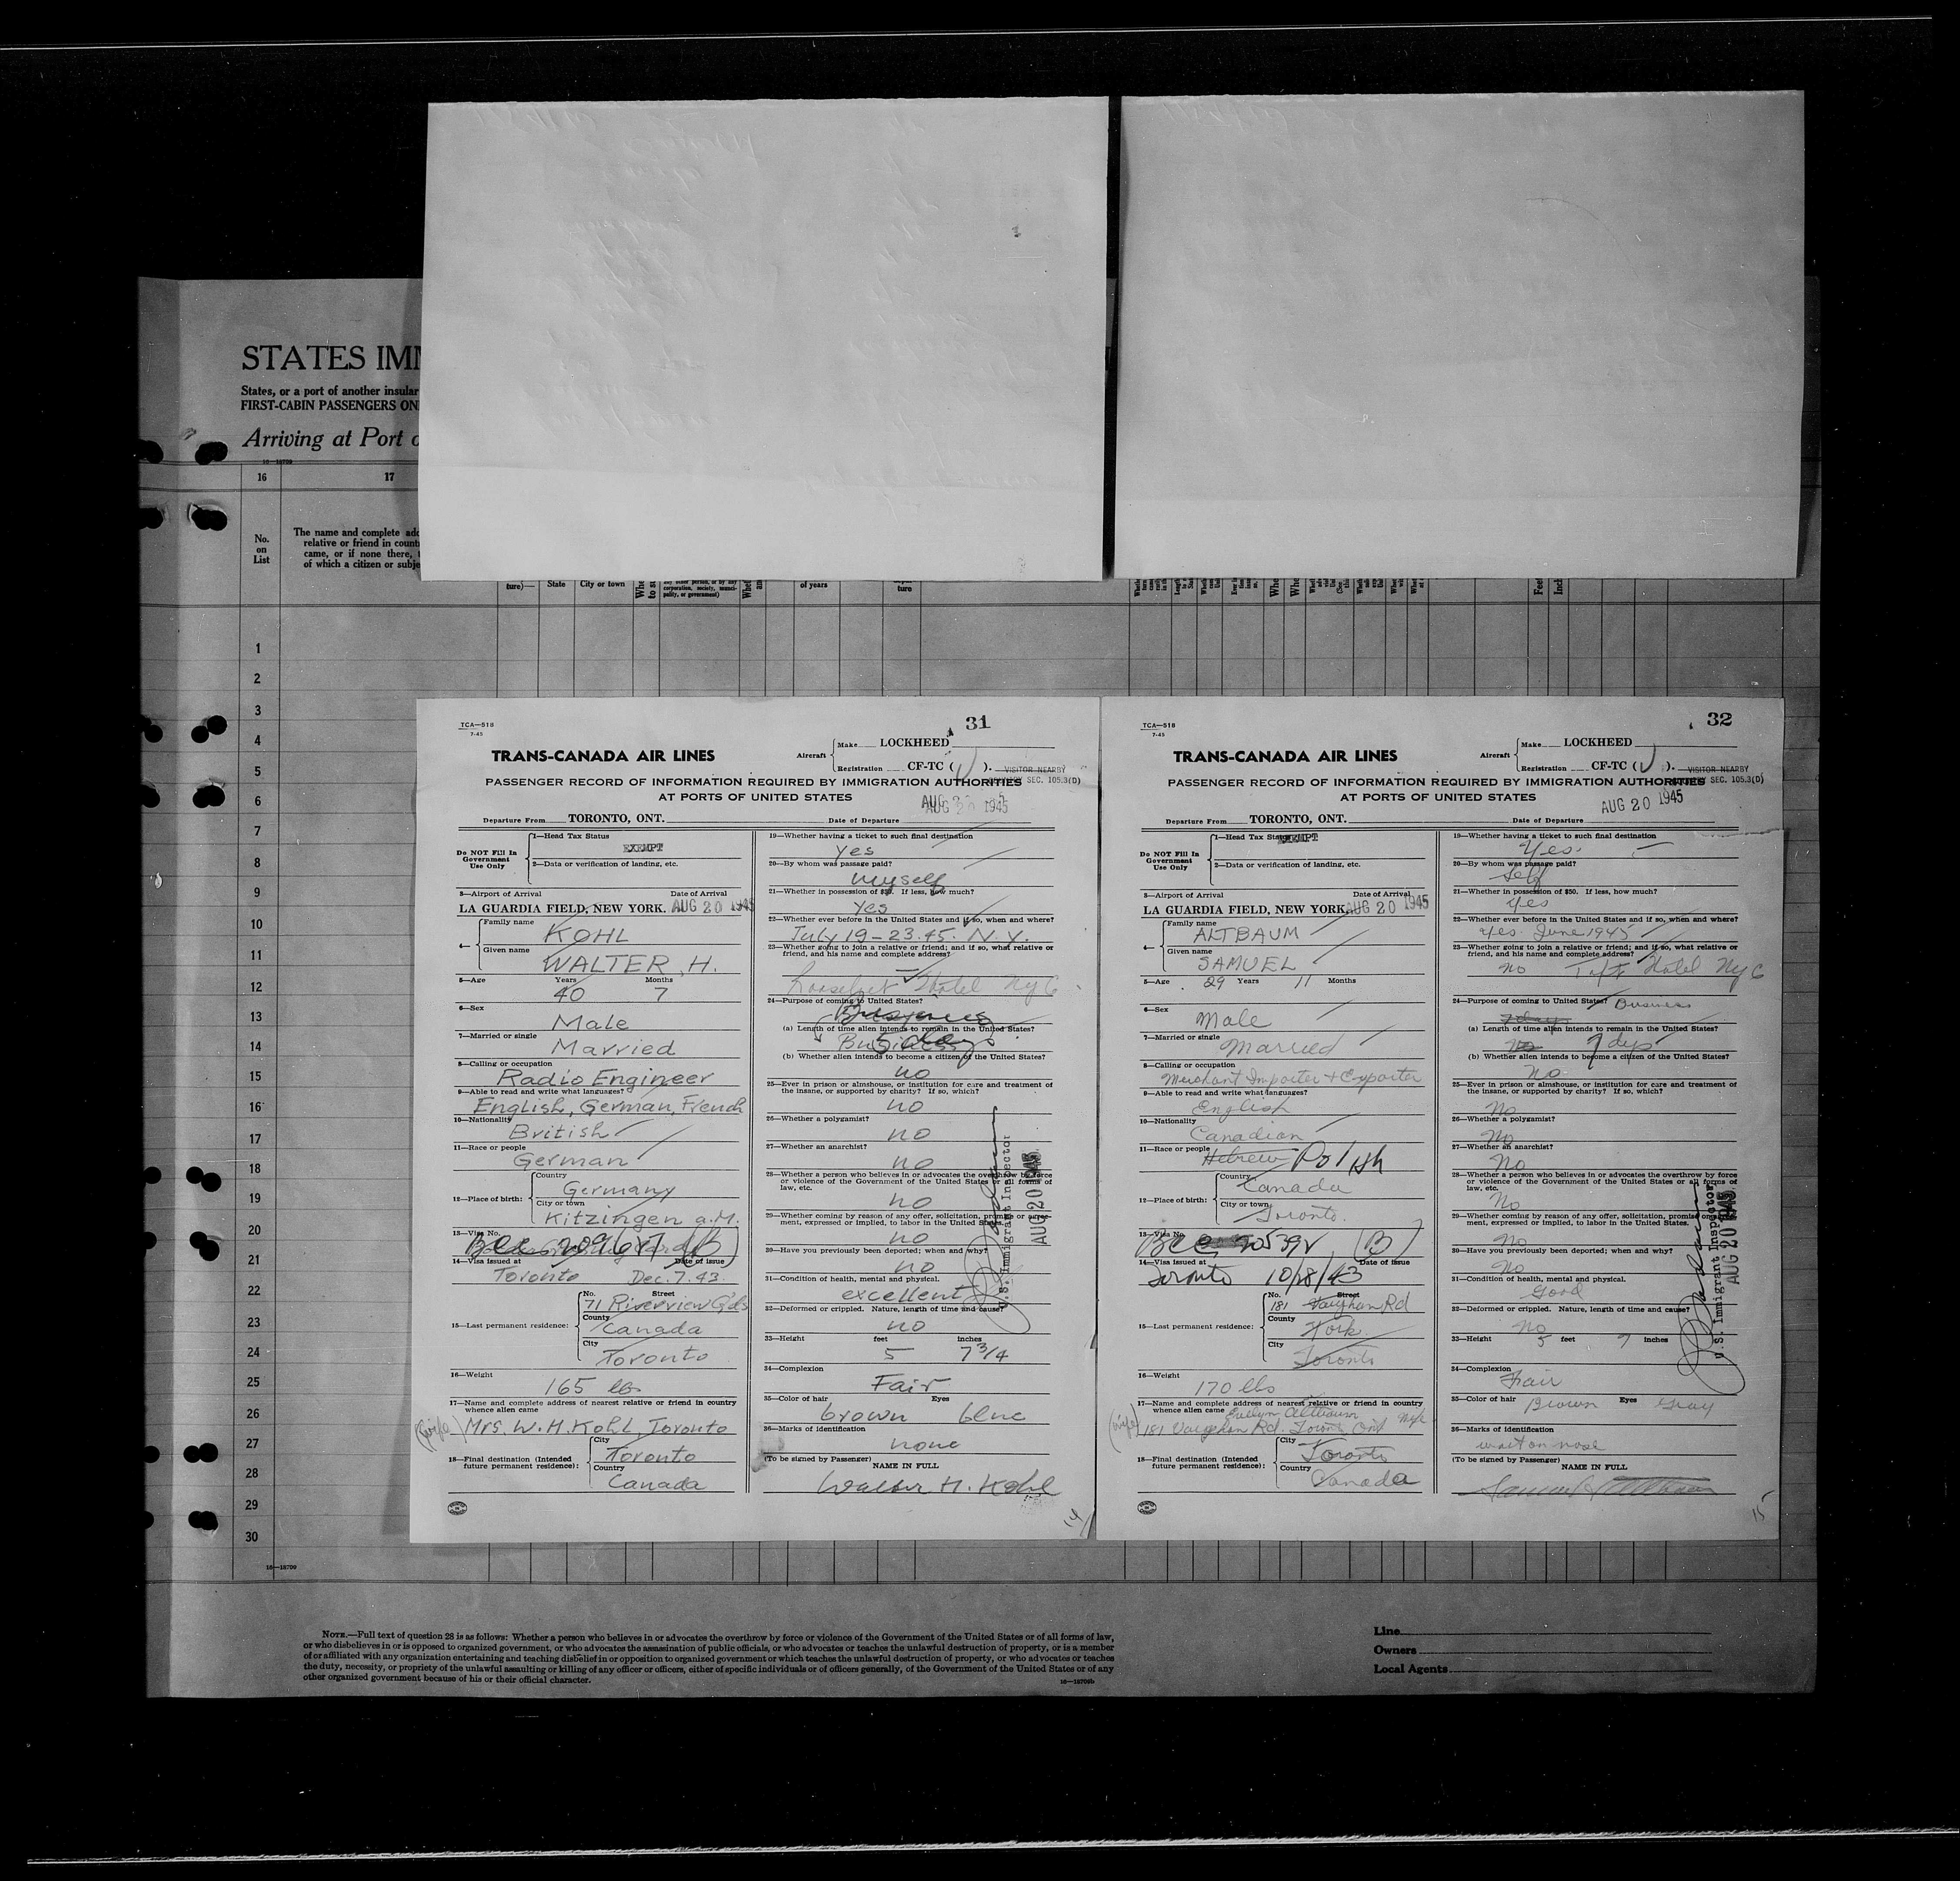 STATES IMM
States, or a port of another insular
FIRST-CABIN PASSENGERS ON
Arriving at Port o
16—18709
16 17
No.
on
List
The name and complete add
relative or friend in count
came, or if none there,
of which a citizen or subje
ture)—
State
City or town
corporation, society, munici-
pality, or government)
of years
ture
Feet
Inc
1
2
3
4
5
6
7
8
9
10
11
12
13
14
15
16
17
18
19
20
21
22
23
24
25
26
27
28
29
30
16—18709
TCA—518
7-45
31
TRANS-CANADA AIR LINES
Aircraft Make LOCKHEED
Registration CF-TC ( ).
VISITOR NEARBY
SEC. 105.3(D)
PASSENGER RECORD OF INFORMATION REQUIRED BY IMMIGRATION AUTHORITIES
AT PORTS OF UNITED STATES
AUG 20 1945
Departure From TORONTO, ONT. Date of Departure
Do NOT Fill In
Government
Use Only
1—Head Tax Status
EXEMPT
2—Data or verification of landing, etc.
3—Airport of Arrival Date of Arrival
LA GUARDIA FIELD, NEW YORK. AUG 20 1945
4— Family name
KOHL
Given name
WALTER, H.
5—Age Years Months
40 7
6—Sex
Male
7—Married or single
Married
8—Calling or occupation
Radio Engineer
9—Able to read and write what languages?
English, German, French
10—Nationality
British
11—Race or people
German
12—Place of birth:
Country
Germany
City or town
Kitzingen a.M.
13—Visa No.
(B)
14—Visa issued at Date of issue
Toronto Dec. 7. 43.
15—Last permanent residence:
No. Street
71 Riverview G'ds
County
Canada
City
Toronto
16—Weight
165 lbs
17—Name and complete address of nearest relative or friend in country
whence alien came
(wife) Mrs. W. H. Kohl, Toronto
18—Final destination (Intended
future permanent residence):
City
Toronto
Country
Canada
19—Whether having a ticket to such final destination
Yes
20—By whom was passage paid?
myself
21—Whether in possession of $50. If less, how much?
Yes
22—Whether ever before in the United States and if so, when and where?
July 19-23. 45. N.Y.
23—Whether going to join a relative or friend; and if so, what relative or
friend, and his name and complete address?
Hotel NyC
24—Purpose of coming to United States?
Business
(a) Length of time alien intends to remain in the United States?
Business 5 days
(b) Whether alien intends to become a citizen of the United States?
no
25—Ever in prison or almshouse, or institution for care and treatment of
the insane, or supported by charity? If so, which?
no
26—Whether a polygamist?
no
27—Whether an anarchist?
no
28—Whether a person who believes in or advocates the overthrow by force
or violence of the Government of the United States or all forms of
law, etc.
no
29—Whether coming by reason of any offer, solicitation, promise or agree-
ment, expressed or implied, to labor in the United States.
no
30—Have you previously been deported; when and why?
no
31—Condition of health, mental and physical.
excellent
32—Deformed or crippled. Nature, length of time and cause?
no
33—Height feet inches
5 7 3/4
34—Complexion
Fair
35—Color of hair Eyes
brown blue
36—Marks of identification
none
(To be signed by Passenger)
NAME IN FULL
Walter H. Kohl
U.S. Immigrant Inspector
AUG 20 1945
14
TCA—518
7-45
32
TRANS-CANADA AIR LINES
Aircraft Make LOCKHEED
Registration CF-TC ( ).
VISITOR NEARBY
SEC. 105.3(D)
PASSENGER RECORD OF INFORMATION REQUIRED BY IMMIGRATION AUTHORITIES
AT PORTS OF UNITED STATES
AUG 20 1945
Departure From TORONTO, ONT. Date of Departure
Do NOT Fill In
Government
Use Only
1—Head Tax Status
EXEMPT
2—Data or verification of landing, etc.
3—Airport of Arrival Date of Arrival
LA GUARDIA FIELD, NEW YORK. AUG 20 1945
4— Family name
ALTBAUM
Given name
SAMUEL
5—Age 29 Years 11 Months
6—Sex
Male
7—Married or single
Married
8—Calling or occupation
Merchant Importer + Exporter
9—Able to read and write what languages?
English
10—Nationality
Canadian
11—Race or people
Hebrew Polish
12—Place of birth:
Country
Canada
City or town
Toronto.
13—Visa No.
(B)
14—Visa issued at Date of issue
Toronto 10/18/43
15—Last permanent residence:
No. Street
181 Vaughan Rd
County
York
City
Toronto
16—Weight
170 lbs
17—Name and complete address of nearest relative or friend in country
whence alien came
Evelyn Altbaum Wife
(wife) 181 Vaughan Rd. Toronto Ont
18—Final destination (Intended
future permanent residence):
City
Toronto
Country
Canada
19—Whether having a ticket to such final destination
Yes.
20—By whom was passage paid?
Self
21—Whether in possession of $50. If less, how much?
Yes
22—Whether ever before in the United States and if so, when and where?
Yes. June 1945
23—Whether going to join a relative or friend; and if so, what relative or
friend, and his name and complete address?
no Taft Hotel NyC
24—Purpose of coming to United States? Business
7 days
(a) Length of time alien intends to remain in the United States?
No 7 dys
(b) Whether alien intends to become a citizen of the United States?
No.
25—Ever in prison or almshouse, or institution for care and treatment of
the insane, or supported by charity? If so, which?
No
26—Whether a polygamist?
No
27—Whether an anarchist?
No
28—Whether a person who believes in or advocates the overthrow by force
or violence of the Government of the United States or all forms of
law, etc.
No
29—Whether coming by reason of any offer, solicitation, promise or agree-
ment, expressed or implied, to labor in the United States.
No
30—Have you previously been deported; when and why?
No
31—Condition of health, mental and physical.
Good
32—Deformed or crippled. Nature, length of time and cause?
No
33—Height 5 feet 7 inches
34—Complexion
Fair
35—Color of hair Brown Eyes Gray
36—Marks of identification
wart on nose
(To be signed by Passenger)
NAME IN FULL
Samuel Altbaum
U.S. Immigrant Inspector
AUG 20 1945
15
NOTE.—Full text of question 28 is as follows: Whether a person who believes in or advocates the overthrow by force or violence of the Government of the United States or of all forms of law,
or who disbelieves in or is opposed to organized government, or who advocates the assassination of public officials, or who advocates or teaches the unlawful destruction of property, or is a member
of or affiliated with any organization entertaining and teaching disbelief in or opposition to organized government or which teaches the unlawful destruction of property, or who advocates or teaches
the duty, necessity, or propriety of the unlawful assaulting or killing of any officer or officers, either of specific individuals or of officers generally, of the Government of the United States or of any
other organized government because of his or their official character.
16—18709b
Line
Owners
Local Agents